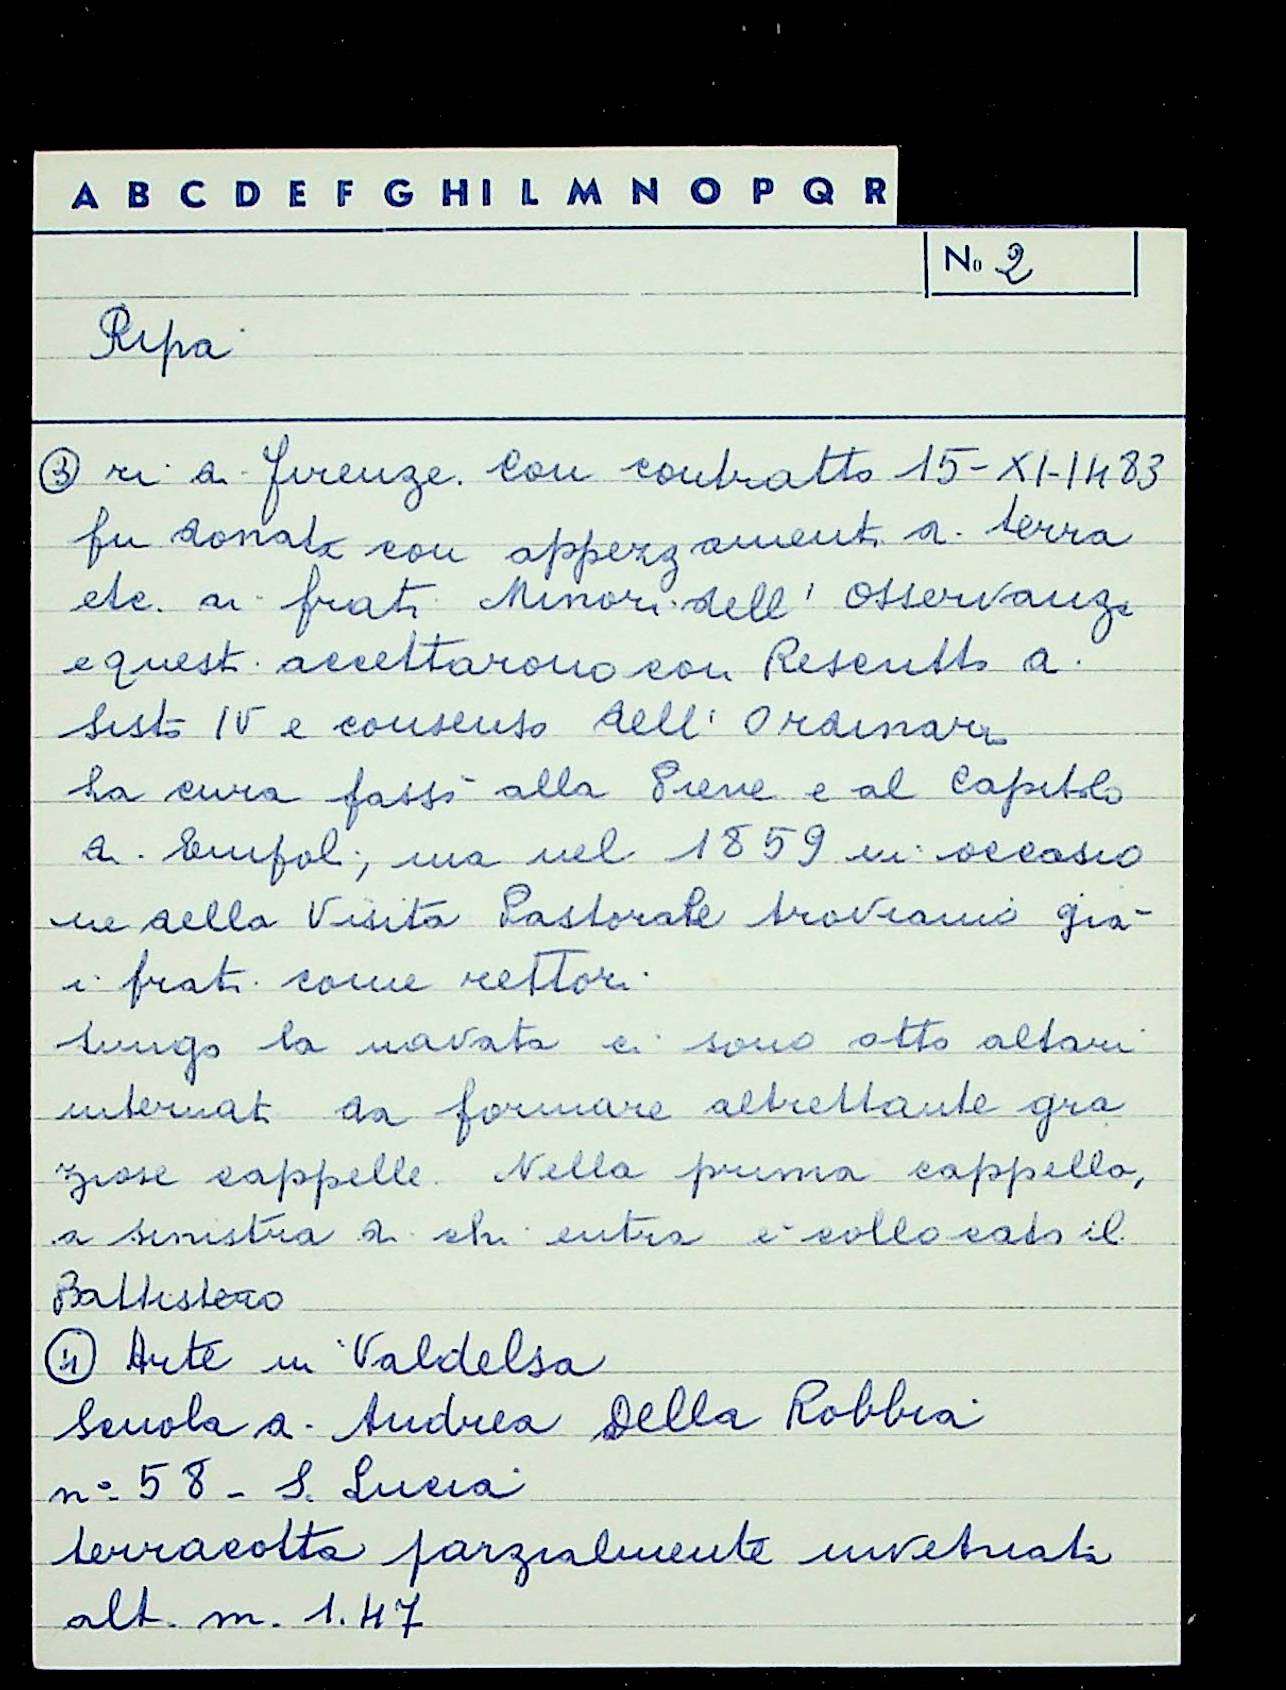 A B C D E F G H I L M N O P Q R
No 2
Ripa
③ ri di Firenze. Con contratto 15-XI-1483
fu donata con appezzamenti di terra
etc. ai frati Minori dell' Osservanza
e questi accettarono con Rescritto di
Sisto IV e consenso dell' Ordinario
La cura passò alla Pieve e al Capitolo
di Empoli; ma nel 1859 in occasio
ne della Visita Pastorale troviamo già
i frati come rettori
Lungo la navata ci sono otto altari
internati da formare altrettante gra
ziose cappelle. Nella prima cappella,
a sinistra di chi entra è collocato il
Battistero
④ Arte in Valdelsa
Scuola di Andrea Della Robbia
n° 58 - S. Lucia
terracotta parzialmente invetriata
alt. m. 1.47